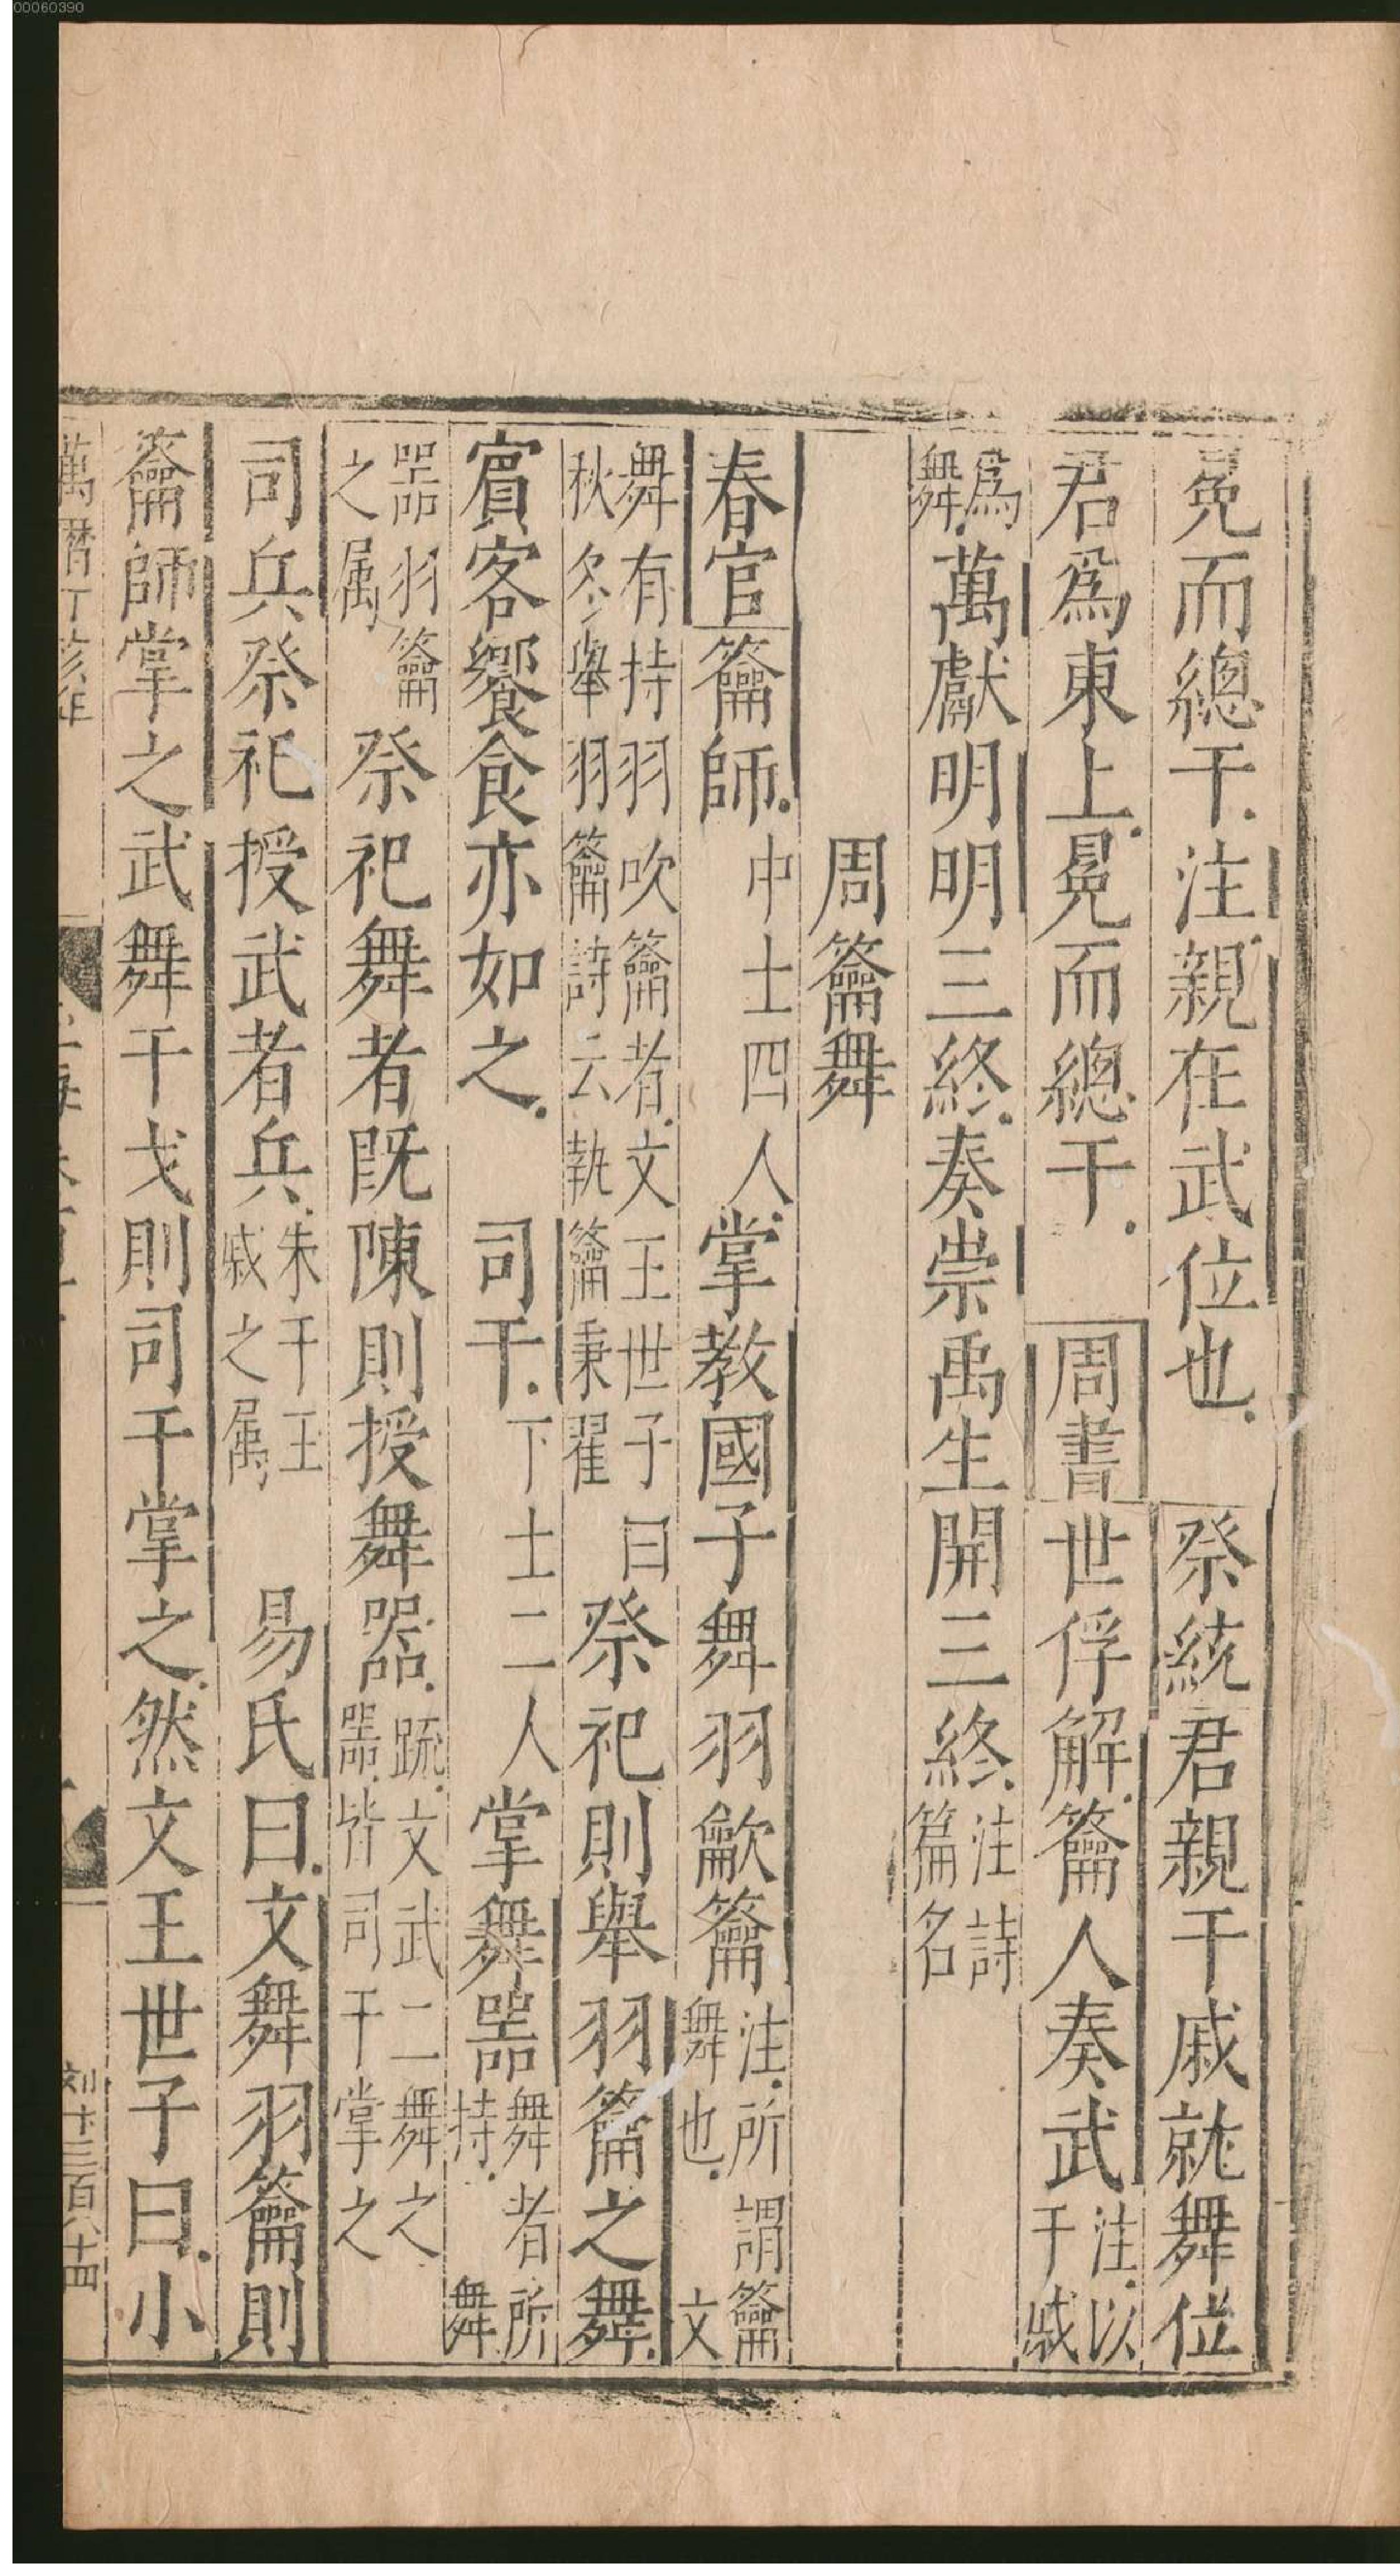 00060390
冕而總干注親在武位也 祭統君親干戚就舞位
君爲東上冕而總干 周書世俘解籥人奏武注以干戚
爲舞萬獻明明三終奏崇禹生開三終注詩篇名
周籥舞
春官籥師中士四人掌教國子舞羽龡籥注所謂籥舞也文
舞有持羽吹籥者文王世子曰秋冬學羽籥詩云執籥秉翟祭祀則舉羽籥之舞
賓客饗食亦如之 司干下士二人掌舞器舞者所持舞
器羽籥之属祭祀舞者既陳則授舞器疏文武二舞之器皆司干掌之
司兵祭祀授武者兵朱干玉戚之属 易氏曰文舞羽籥則
籥師掌之武舞干戈則司干掌之然文王世子曰小
萬暦丁亥年
刘卞三百八十四